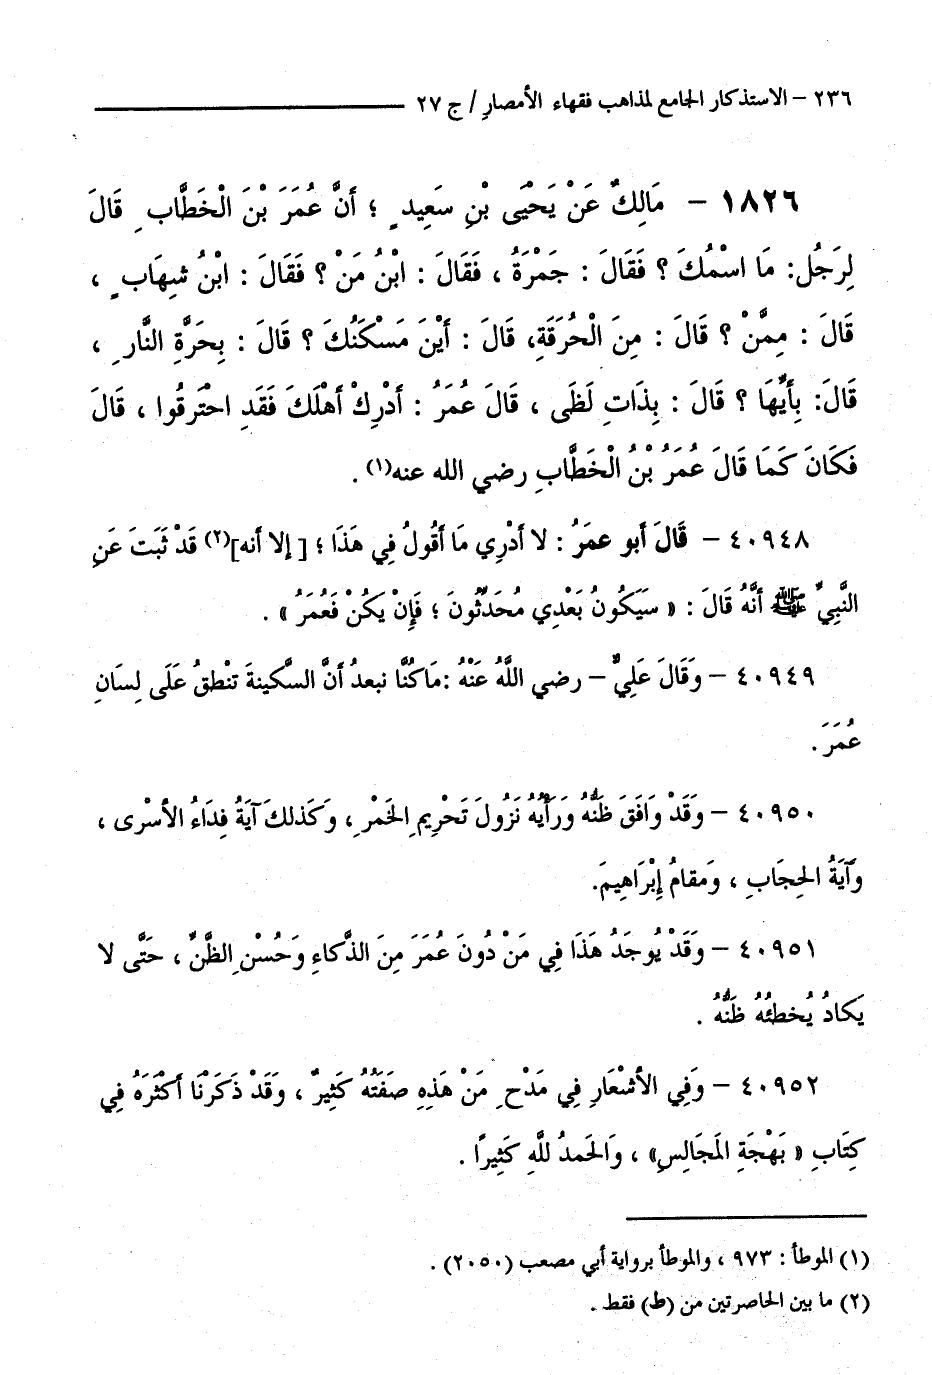 ٢٣٦ – الاستذكار الجامع لمذاهب فقهاء الأمصارِ / ج ٢٧
١٨٢٦ – مَالِكٌ عَنْ يَحْيَى بْنِ سَعِيدٍ ؛ أَنَّ عُمَرَ بْنَ الْخَطَّابِ قَالَ
لِرَجُلٍ: مَا اسْمُكَ ؟ فَقَالَ : جَمْرَةُ ، فَقَالَ : ابْنُ مَنْ ؟ فَقَالَ : ابْنُ شِهَابٍ ،
قَالَ : مِمَّنْ ؟ قَالَ : مِنَ الْحُرَقَةِ، قَالَ : أَيْنَ مَسْكَنُكَ ؟ قَالَ : بِحَرَّةِ النَّارِ ،
قَالَ: بِأَيِّهَا ؟ قَالَ : بِذَاتِ لَظَى ، قَالَ عُمَرُ : أَدْرِكْ أَهْلَكَ فَقَدِ احْتَرقُوا ، قَالَ
فَكَانَ كَمَا قَالَ عُمَرُ بْنُ الْخَطَّابِ رضي الله عنه(١) .
٤٠٩٤٨ – قَالَ أبو عمَرُ : لا أدْرِي مَا أقُولُ فِي هَذَا ؛ [ إلا أنه](٢) قَدْ ثَبَتَ عَنِ
النَّبِيِّ ﷺ أنَّهُ قَالَ : « سَيَكُونُ بَعْدِي مُحَدَّثُونَ ؛ فَإِنْ يكُنْ فَعُمَرُ » .
٤٠٩٤٩ – وَقَالَ عَلِيٌّ – رضي اللَّهُ عَنْهُ :مَاكُنَّا نبعدُ أنَّ السَّكينةَ تنْطقُ عَلَى لِسَانِ
عُمَرَ .
٤٠٩٥٠ – وَقَدْ وَافَقَ ظَنُّهُ وَرَأْيُهُ نَزُولَ تَحْرِيمِ الخَمْرِ، وَكَذلكَ آيَةُ فِدَاءُ الأسْرى ،
وآيَةُ الحِجَابِ ، وَمقامُ إِبْرَاهِيمَ.
٤٠٩٥١ – وَقَدْ يُوجَدُ هَذَا فِي مَنْ دُونَ عُمَرَ مِنَ الذَّكاءِ وَحُسْنِ الظَّنِّ ، حَتَّى لا
يَكادُ يُخطئُهُ ظَنُّهُ .
٤٠٩٥٢ – وَفِي الأشْعَارِ فِي مَدْحِ مَنْ هَذِهِ صفَتُهُ كَثِيرٌ ، وَقَدْ ذَكَرْنَا أكْثَرَهُ فِي
كِتَابِ « بَهْجَةِ المَجَالِسِ» ، وَالحَمدُ للَّهِ كَثِيرًا .
(١) الموطأ : ٩٧٣ ، والموطأ برواية أبي مصعب (٢٠٥٠) .
(٢) ما بين الحاصرتين من (ط) فقط .